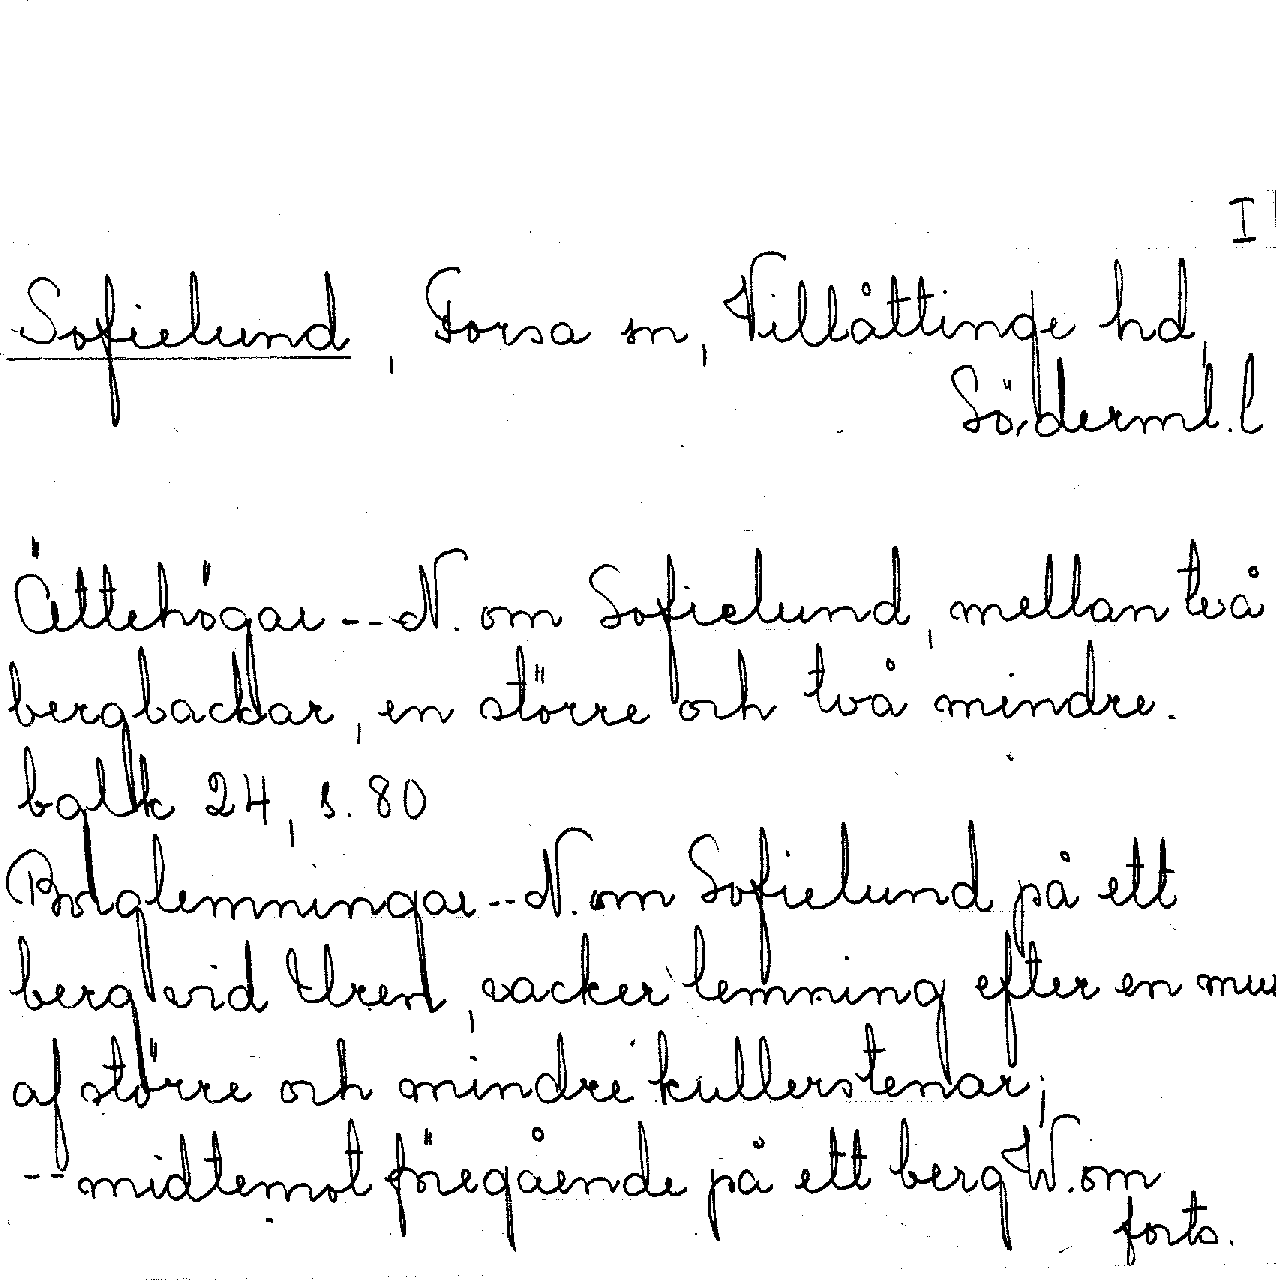 I
Sofielund, Forsa sn, Villåttinge hd,
Söderml. l
Ättehögar -- N. om Sofielund, mellan två
bergbackar, en större och två mindre.
balk 24, s. 80
Borglemningar -- N. om Sofielund på ett
berg vid Uren, vacker lemning efter en mur
af större och mindre kullerstenar;
-- midtemot föregående på ett berg W. om
forts.